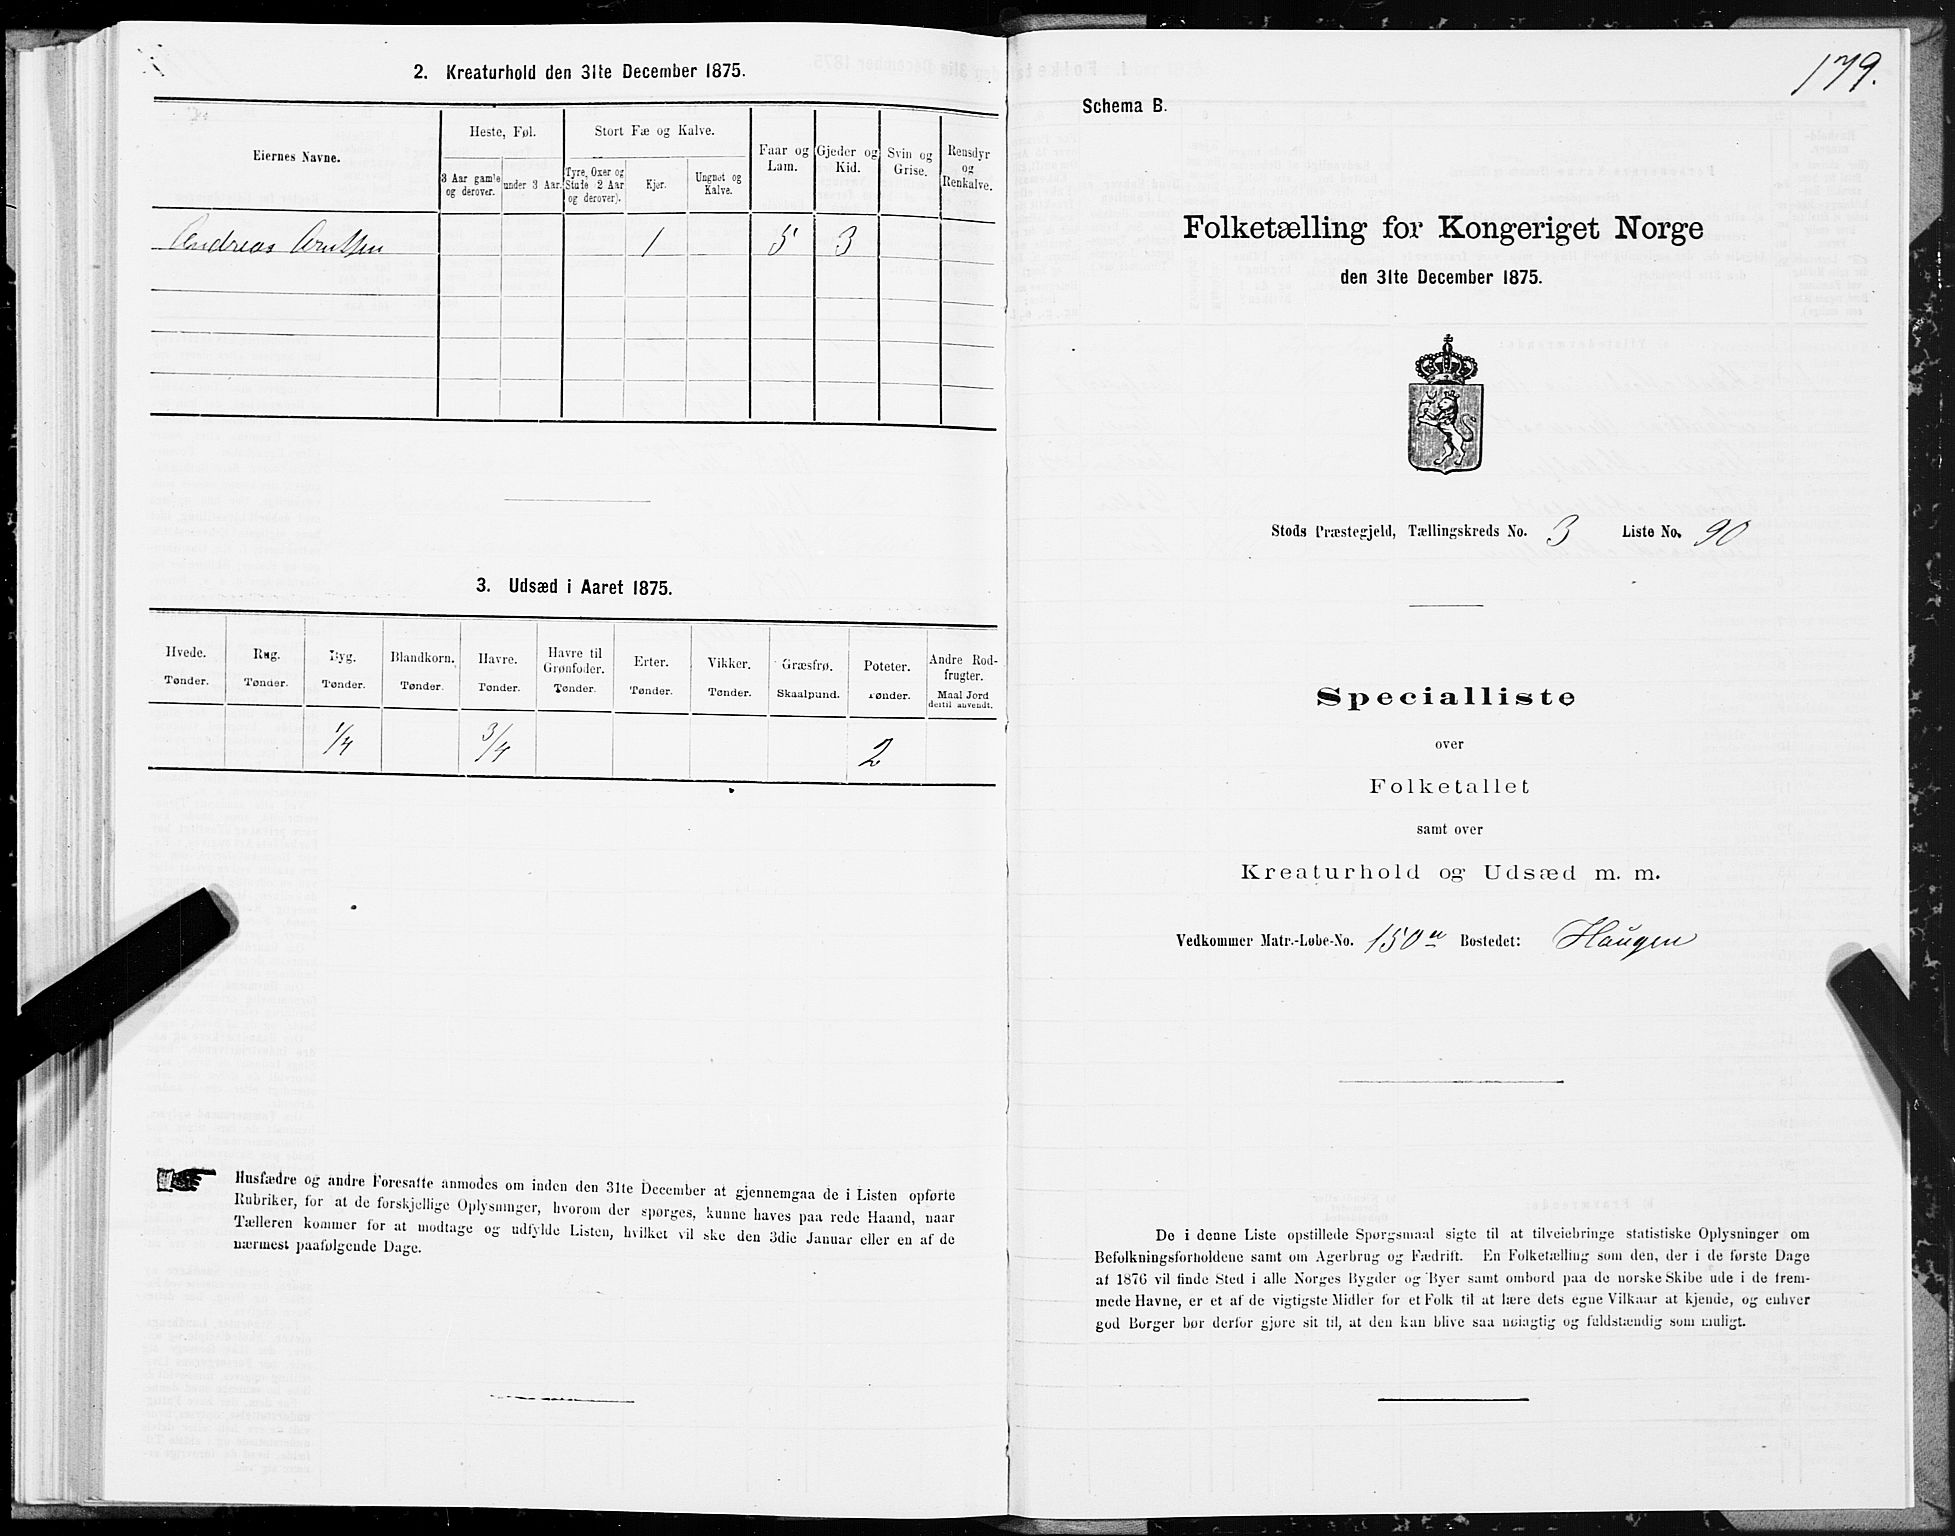 2. Kreaturhold den 31te December 1875.
Eiernes Navne.
Heste, Føl.
Stort Fæ og Kalve.
Faar og Lam.
Gjeder og Kid.
Svin og Grise.
Rensdyr og Renkalve.
3 Aar gamle og derover.
under 3 Aar.
Tyre, Oxer og Stude 2 Aar og derover).
Kjør.
Ungnøt og Kalve.
Andreas Arntsen 1 5 3
3. Udsæd i Aaret 1875.
Hvede. Tønder.
Rug. Tønder.
Byg. Tønder.
Blandkorn. Tønder.
Havre. Tønder.
Havre til Grønfoder. Tønder.
Erter. Tønder.
Vikker. Tønder.
Græsfrø. Skaalpund.
Poteter. Tønder.
Andre Rodfrugter. Maal Jord dertil anvendt.
1/4 3/4 2
Husfædre og andre Foresatte anmodes om inden den 31te December at gjennemgaa de i Listen opførte
Rubriker, for at de forskjellige Oplysninger, hvorom der spørges, kunne haves paa rede Haand, naar
Tælleren kommer for at modtage og udfylde Listen, hvilket vil ske den 3die Januar eller en af de
nærmest paafølgende Dage.
179.
Schema B.
Folketælling for Kongeriget Norge
den 31te December 1875.
Stods Præstegjeld, Tællingskreds No. 3 Liste No. 90
Specialliste
over
Folketallet
samt over
Kreaturhold og Udsæd m. m.
Vedkommer Matr.-Løbe-No. 150 a Bostedet: Haugen
De i denne Liste opstillede Spørgsmaal sigte til at tilveiebringe statistiske Oplysninger om
Befolkningsforholdene samt om Agerbrug og Fædrift. En Folketælling som den, der i de første Dage
af 1876 vil finde Sted i alle Norges Bygder og Byer samt ombord paa de norske Skibe ude i de frem-
mede Havne, er et af de vigtigste Midler for et Folk til at lære dets egne Vilkaar at kjende, og enhver
god Borger bør derfor gjøre sit til, at den kan blive saa nøiagtig og fuldstændig som muligt.